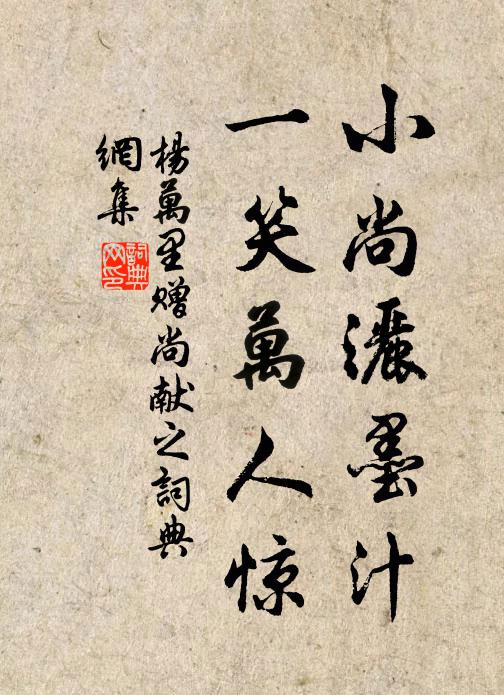 小尚灑墨汁
一笑萬人惊
楊萬里贈尚献之詞典
網集
詞典
网印